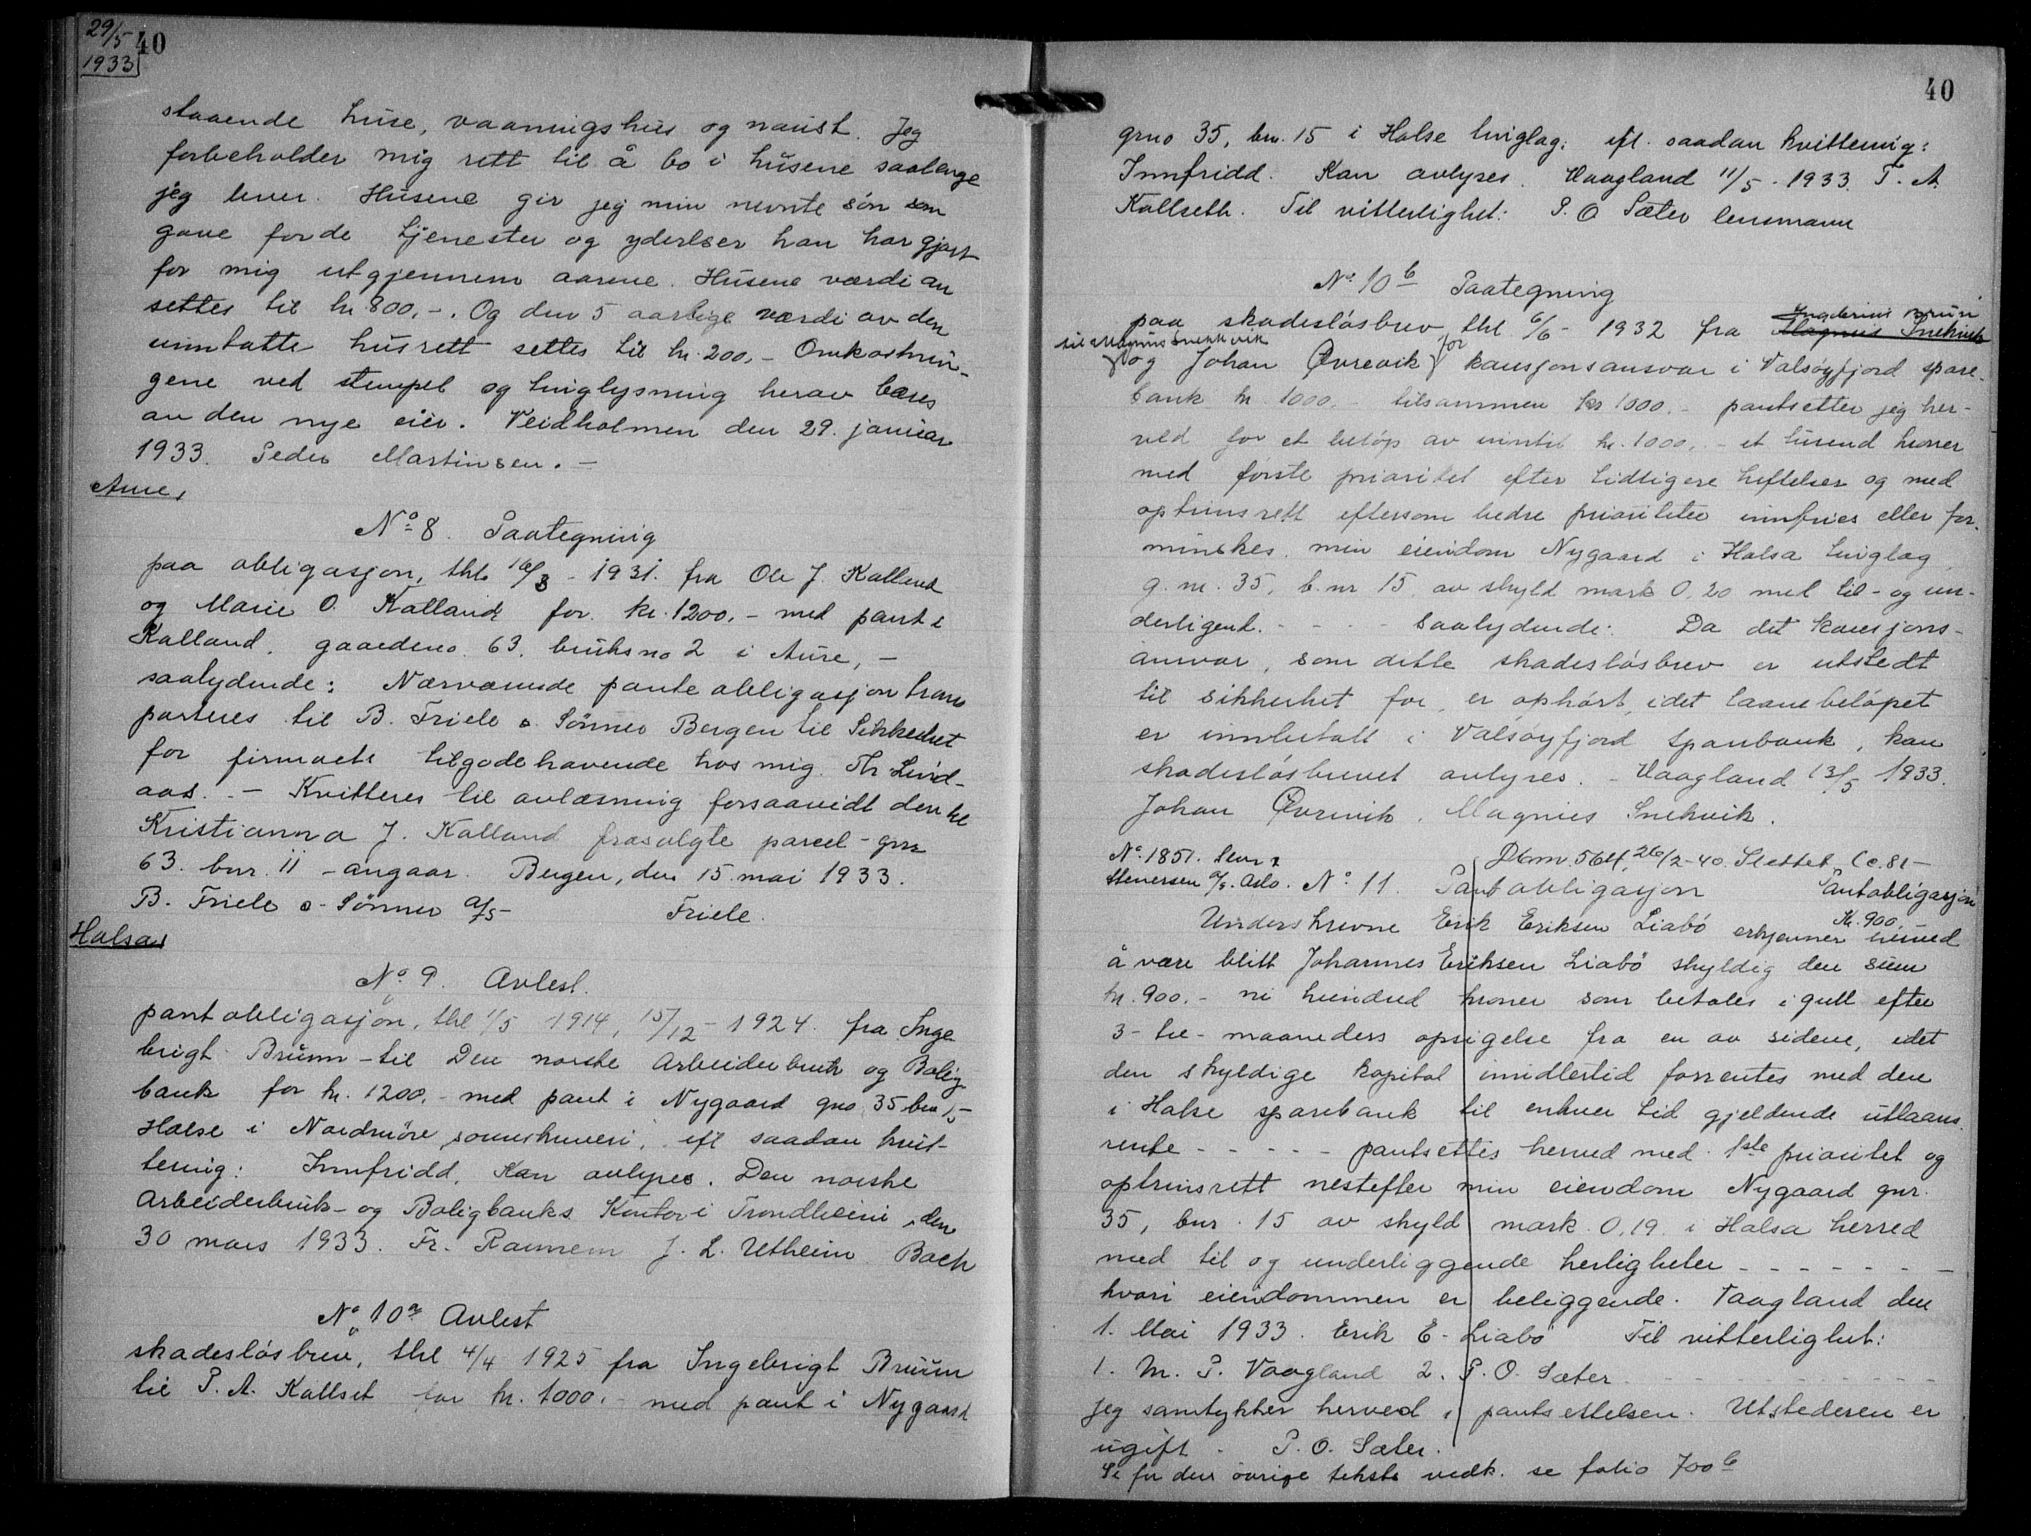 29/5
1933
40
staaende huse, vaaningshus og naust. Jeg
forbeholder mig rett til å bo i husene saalenge
jeg lever. Husene gir jeg min nevnte sön som
gave for de tjenester og yderlser han har gjort
for mig utgjennem aarene. Husene værdi an
settes til kr 800,-. Og den 5 aarlige værdi av den
unntatte husrett settes til kr. 200,- Omkostnin-
gene ved stempel og tinglysning herav bæres
av den nye eier. Veidholmen den 29. januar
1933. Peder Martinsen. -
Aure,
No 8. Paategning
paa obligasjon, thl. 16/3 - 1931. fra Ole J. Kalland
og Marie O. Kalland for kr. 1200.- med pant i
Kalland. gaardsno. 63. bruksno 2 i Aure, -
saalydende: Nærværende pante obligasjon trans
porteres til B. Friele & Sönner Bergen til Sikkerhet
for firmaets tilgodehavende hos mig. Th Lind-
aas. - Kvitteres til avlæsning forsaavidt den til
Kristianna J. Kalland frasolgte parcel - gnr
63. bnr. 11 - angaar. Bergen, den 15. mai 1933.
B. Friele & Sönner A/S - Friele.
Halsa,
No 9. Avlest.
pantobligasjon, thl 1/5 1914, 15/12 - 1924. fra Inge
brigt Bruun - til Den norske Arbeiderbruk og Bolig
bank for kr. 1200.- med pant i Nygaard gno 35 bn 15
Halse i Nordmöre sorenskriveri, efl saadan kvit-
tering: Innfridd. Kan avlyses. Den norske
Arbeiderbruk- og Boligbanks Kontor i Trondheim, den
30 mars 1933. Fr. Raunem J. L. Utheim Bach
No 10a Avlest
skadeslösbrev, thl 4/4 1925 fra Ingebrigt Bruun
til P. A. Kallset for kr. 1000.- med pant i Nygaard
40
gno 35, bn. 15 i Halse tinglag. efl. saadan kvittering:
Innfridd. Kan avlyses. Vaagland 11/5 - 1933. P. A.
Kallseth. Til vitterlighet: P. O Sæter lensmann
No 10b Paategning
Ingebrigt Bruun
paa skadeslösbrev, thl 6/6 - 1932 fra Magnus Snekvik
til Magnus Snekkvik
og Johan Øvrevik for kausjonsansvar i Valsöyfjord spare-
bank kr. 1000.- tilsammen kr 1000.- pantsetter jeg her-
ved for et belöp av inntil kr. 1000.- et tusend kroner
med förste prioritet efter tidligere heftelser og med
optrinsrett eftersom bedre prioriteter innfries eller for-
minskes. min eiendom Nygaard i Halsa tinglag,
g. nr. 35, b. nr 15. av skyld mark 0,20 med til- og un-
derliggend. - - - - saalydende: Da det kausjons-
ansvar, som dette skadeslösbrev er utstedt
til sikkerhet for, er ophört, idet laanebelöpet
er innbetalt i Valsöyfjord Sparebank, kan
skadeslösbrevet avlyses. - Vaagland 13/5 1933.
Johan Øvrevik. Magnus Snekvik.
No. 1851.
Stenersen A/S. Oslo.
Dbnr. 564, 26/2-40. Slettet
No 11. Pantobligasjon
Pantobligasjon
Kr. 900.
Underskrevne Erik Eriksen Liabö erkjenner herved
å være blitt Johannes Eriksen Liabö skyldig den sum
kr. 900.- ni hundred kroner som betales i gull efter
3- tre- maaneders opsigelse fra en av sidene, idet
den skyldige kapital imidlertid forrentes med den
i Halse sparebank til enhver tid gjeldende utlaans
rente - - - - - pantsettes herved med 1ste prioritet og
optrinsrett nestefter min eiendom Nygaard gnr.
35, bnr. 15 av skyld mark 0,19 i Halsa herred
med til og underliggende herligheter - - - - - - -
hvori eiendommen er beliggende. Vaagland den
1. Mai 1933. Erik E. Liabö Til vitterlighet:
1. M. P. Vaagland 2. P. O. Sæter - - - - - - - - -
jeg samtykker herved i pantsettelsen. Utstederen er
ugift. P. O. Sæter.
for den övrige tekst vedk. se folio 700b